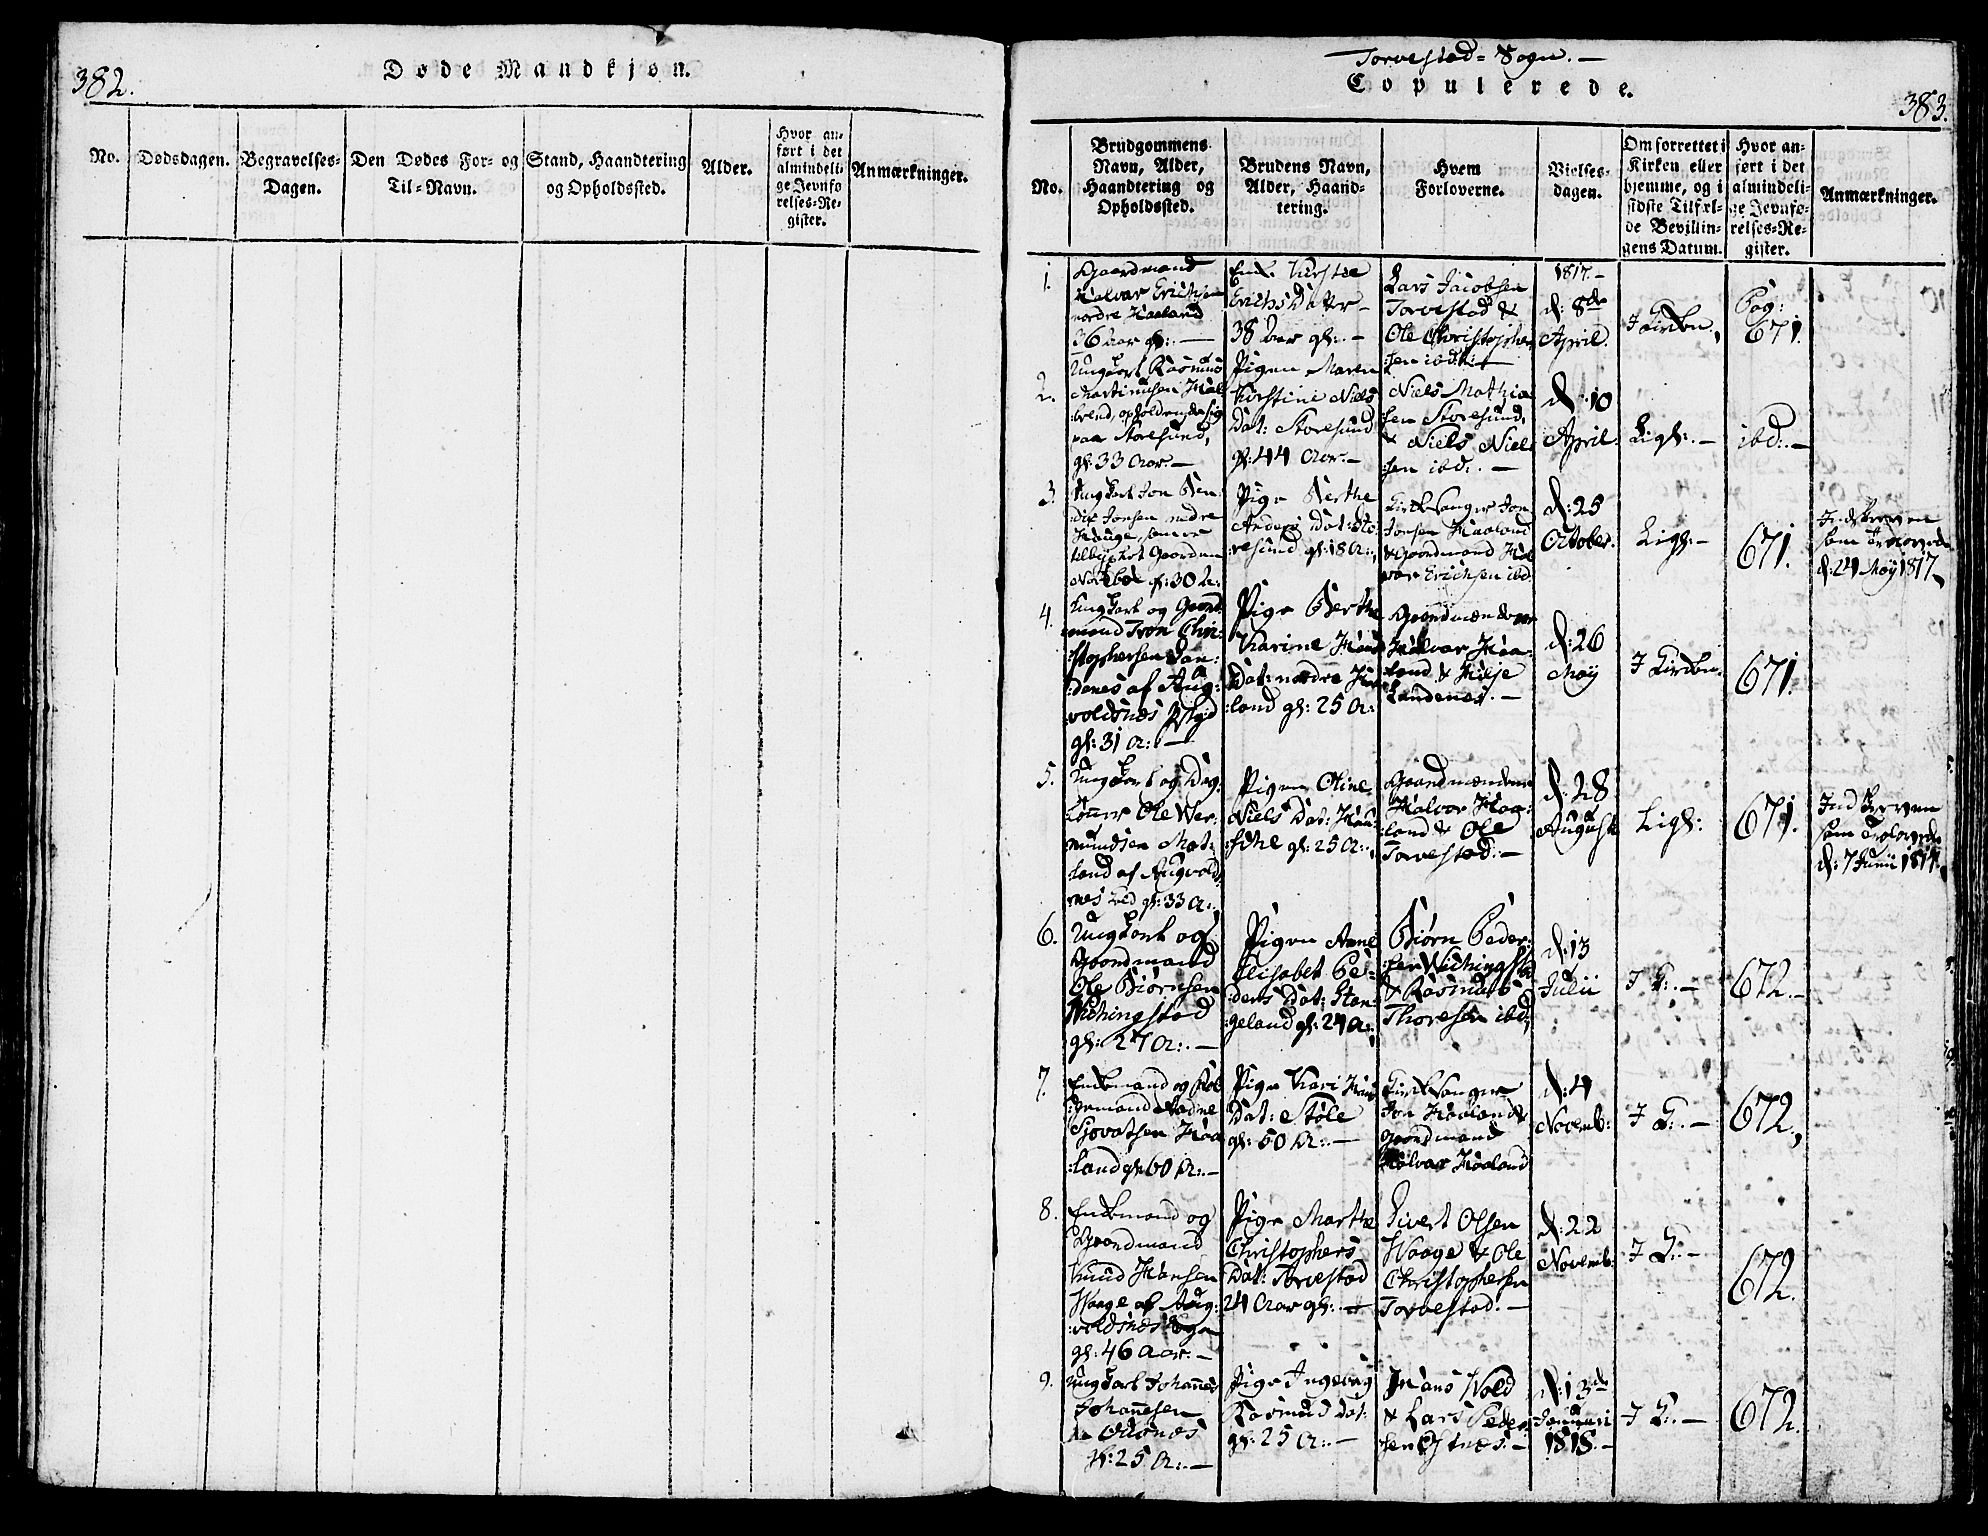 382.
Døde Mandkjøn.
No.
Dødsdagen.
Begravelses-
Dagen.
Den Dødes For- og
Til-Navn.
Stand, Haandtering
og Opholdssted.
Alder.
Hvor an-
ført i det
almindeli-
ge Jevnfø
relses-Re-
gister.
Anmærkninger.
Torvestad-Sogn.-
Copulerede.
383.
No.
Brudgommens
Navn, Alder,
Haandtering og
Opholdssted.
Brudens Navn,
Alder, Haand-
tering.
Hvem
Forloverne.
Vielses-
dagen.
Om forrettet i
Kirken eller
hjemme, og i
sidste Tilfæl-
de Bevillin-
gens Datum.
Hvor an-
ført i det
almindeli-
ge Jevnfø-
relses-Re-
gister.
Anmærkninger.
1.
Gaardmand
Halvar Erichsen
nordre Haaland
36 Aar gl:-
Enk: Kirstie
Erichs Datter-
38 Aar gl:-
Lars Jacobsen
Torvestad &
Ole Christophe
sen ibd:-
1817.-
d: 8de
April.
I Kirken,
Pag:
671.
2.
Ungkarl Rasmus
Martinusen
opholdende sig
paa Storesund,
gl: 33 Aar.-
Pigen Maren
Kirstine Niels
Dat: Storesund
gl: 44 Aar.-
Niels Mathia
sen Storesund,
& Niels Niel
sen ibd:.-
d: 10
April.
Ligl:.-
ibd:.-
3.
Ungkarl Jon Ben
dix Jonsen nedre
Hauge, som
Gaarden
gl: 30 A:
Pige Berthe
Anders Dat: Sto
resund gl: 18 A:,
Kirkesanger Jon
Jonsen Haaland
& Gaardmand Hal
var Erichsen ibd.
d: 25
October.
Ligl:-
671.
Indskreven
som Trolovede
d: 24 Maij 1817
4.
Ungkarl og Gaard
mand Iron Chri-
stophersen San-
denes af Aug-
voldsnes Pstgd
gl: 31 A:.-
Pige Berthe
Karine Hans
Dat: nordre Haa
land gl: 25 A:
Gaardmændene
Halvar Haa-
land &
Sandenes.-
d: 26
Maij
I Kirken.
671.
5.
Ungkarl og Dag-
lønner Ole Wer-
mundsen Mat-
land af Augvolds
nes Sogn gl: 33 A:,
Pigen Oline
Niels Dat: Hau-
gl: 25 A:,
Gaardmændene
Halvar Haa-
land & Ole
Torvestad:-
d: 28
August
Ligl:
671.
Indskreven
som Trolovede
d: 7 Junii 1817.
6.
Ungkarl og
Gaardmand
Ole Biørnsen
Wichingstad
gl: 27 A:.-
Pigen Anne
Elisabet Pe-
ders Dat: Stan-
geland gl: 24 A:,
Biørn Peder-
sen Wichingsta
& Rasmus
Thoresen ibd,
d: 13
Julii
I K:.-
672.-
7.
Enkemand og
Sjovatsen Haa
land gl: 60 A:.-
Pige Kari Hans
Dat: Støle
gl: 50 A:.-
Kirkesanger
Jon Haaland &
Gaardmand
Halvar Haaland
d: 4
Novemb:
I K:.-
672.,
8.
Enkemand og
Gaardmand
Knud Hansen
Waage af Aug-
voldsnes Sogn
gl: 46 Aar.-
Pige Marthe
Christophers
Dat: Torvestad
24 Aar gl:.-
Sivert Olsen
Waage & Ole
Christophersen
Torvestad.-
d: 22
Novemb:
I K:.-
672.
9.
Ungkarl Johanes
Johanesen
Odsnes
gl: 25 A:.-
Pige Ingeborg
Rasmus Dat:
gl: 25 A:.-
Jnans Wold
& Lars Peder
sen
d: 13de
Januari
1818.-
I K:.-
672.